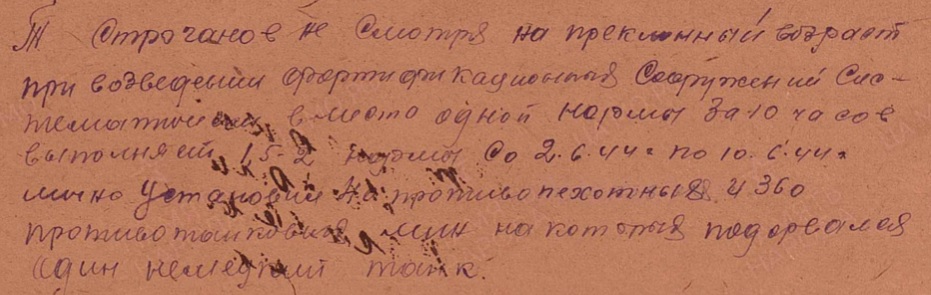 Т Строганов не смотря на преклонный возраст
при возведении фортификационыя Сооружений Сис-
тематически вместо одной нормы за 10 часов
выполняет 1,5-2 нормы Со 2.6.44г по 10.6.44г
лично установил противопехотныя и 360
противотанковыя мин на которыя подорвался
один немецкий танк.